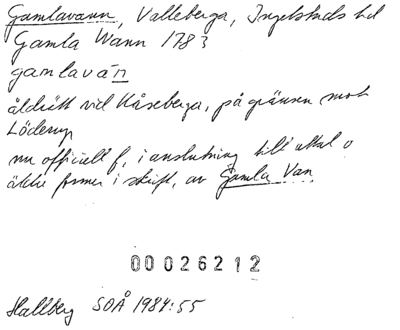 Gamlavann, Valleberga, Ingelstads hd
Gamla Wann 1783
gamlaván
åldrätt vid Kåseberga, på gränsen mot
Löderup
nu officiell f, i anslutning till uttal o
äldre former i skrift, av Gamla Van
00026212
Hallberg SOÅ 1984:55